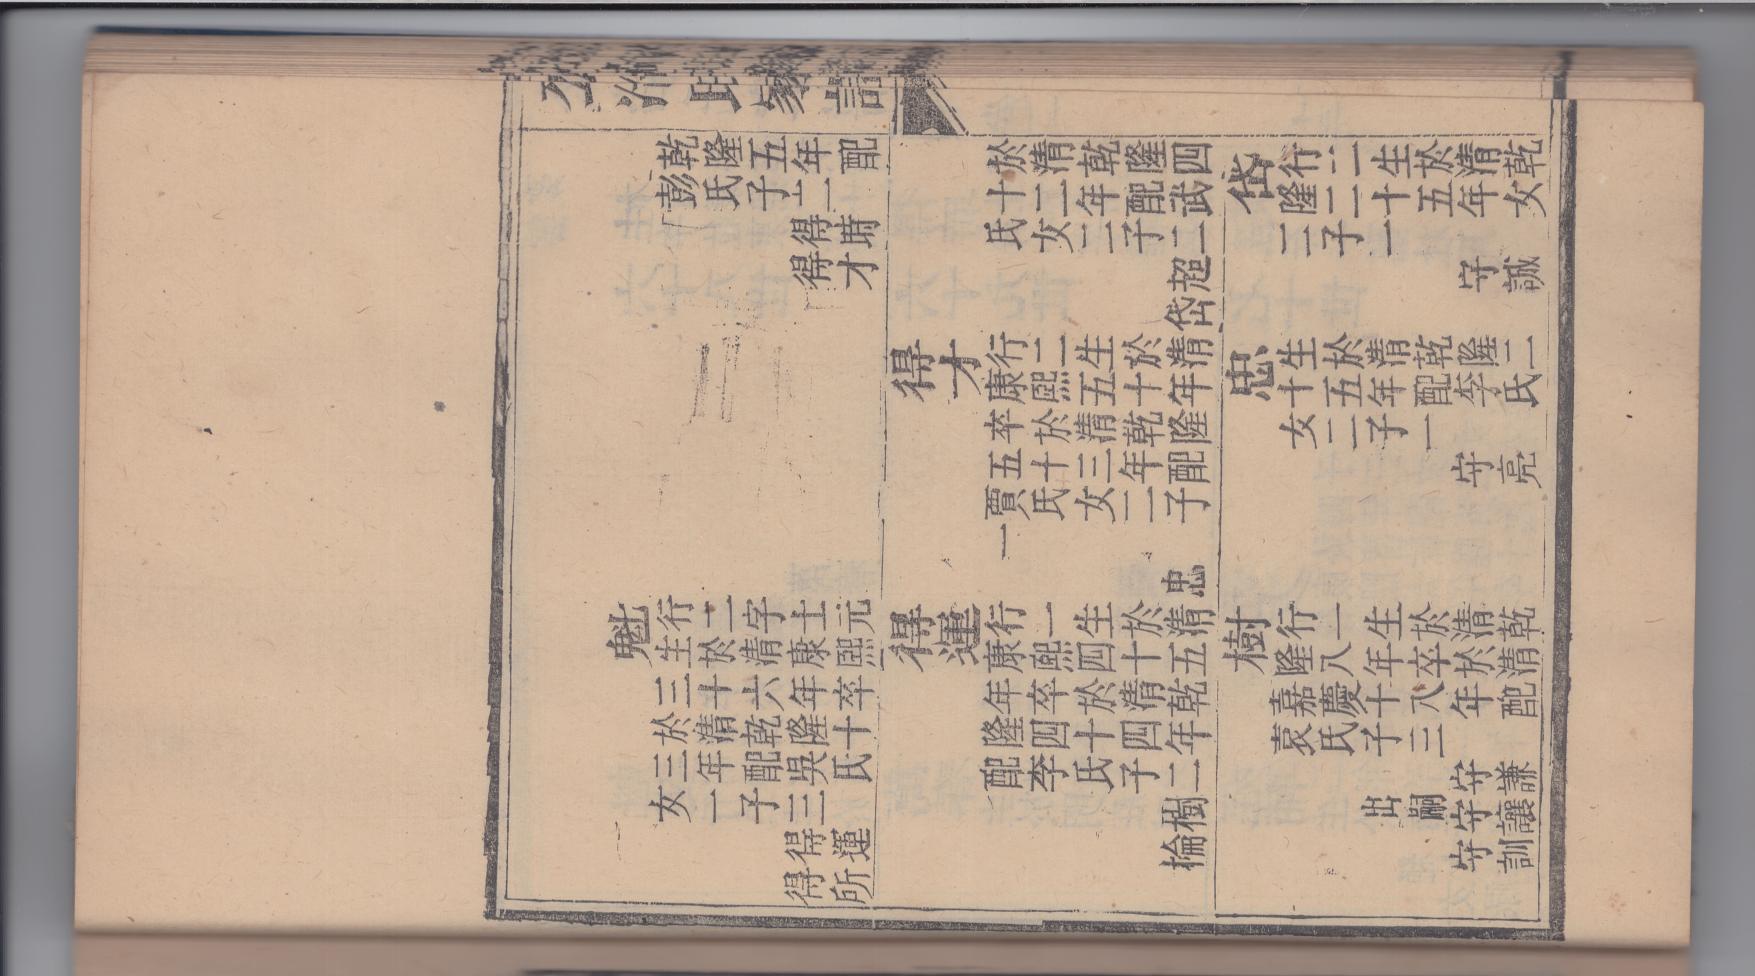 公冶氏家譜
乾隆五年配
彭氏子二
得時
得才
魁
行二字士元
生於清康熙
三十六年卒
於清乾隆十
三年配吳氏
女一子三
得運
得所
於清乾隆四
十二年配武
氏女二子二
超
岱
得才
行二生於清
康熙五十年
卒於清乾隆
五十三年配
賈氏女二子
一
忠
得運
行一生於清
康熙四十五
年卒於清乾
隆四十四年
配李氏子二
樹
棆
岱
行二生於清乾
隆二十五年女
三子一
守誠
忠
生於清乾隆二
十五年配李氏
女二子一
守亮
樹
行一生於清乾
隆八年卒於清
嘉慶十八年配
袁氏子三
守謙
出嗣守讓
守訓